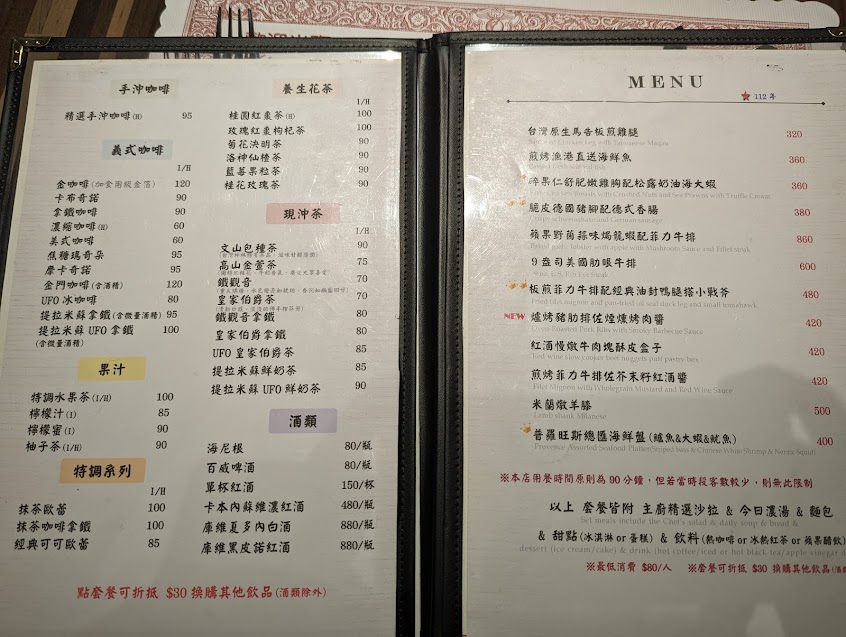 手沖咖啡
精選手沖咖啡(H) 95
義式咖啡
I/H
金咖啡(加食用級金箔) 120
卡布奇諾 90
拿鐵咖啡 90
濃縮咖啡(H) 60
美式咖啡 60
焦糖瑪奇朵 95
摩卡奇諾 95
金門咖啡(含酒精) 120
UFO 冰咖啡 80
提拉米蘇拿鐵(含微量酒精) 95
提拉米蘇 UFO 拿鐵 100
(含微量酒精)
果汁
特調水果茶(I/H) 100
檸檬汁(I) 85
檸檬蜜(I) 90
柚子茶(I/H) 90
特調系列
I/H
抹茶歐蕾 100
抹茶咖啡拿鐵 100
經典可可歐蕾 85
養生花茶
I/H
桂圓紅棗茶(H) 100
玫瑰紅棗枸杞茶 100
菊花決明茶 90
洛神仙楂茶 90
藍莓果粒茶 90
桂花玫瑰茶 90
現沖茶
I/H
文山包種茶 90
高山金萱茶 75
鐵觀音 70
皇家伯爵茶 70
鐵觀音拿鐵 80
皇家伯爵拿鐵 80
UFO 皇家伯爵茶 85
提拉米蘇鮮奶茶 85
提拉米蘇 UFO 鮮奶茶 90
酒類
海尼根 80/瓶
百威啤酒 80/瓶
單杯紅酒 150/杯
卡本內蘇維濃紅酒 480/瓶
庫維夏多內白酒 880/瓶
庫維黑皮諾紅酒 880/瓶
點套餐可折抵 $30 換購其他飲品(酒類除外)
MENU
112 年
台灣原生馬告板煎雞腿 320
煎烤漁港直送海鮮魚 360
碎果仁舒肥嫩雞胸配松露奶油海大蝦 360
脆皮德國豬腳配德式香腸 380
蘋果野菌蒜味焗龍蝦配菲力牛排 860
9 盎司美國肋眼牛排 600
板煎菲力牛排配經典油封鴨腿搭小戰斧 480
NEW 爐烤豬肋排佐煙燻烤肉醬 420
Oven-Roasted Pork Ribs with Smoky Barbecue Sauce
紅酒慢燉牛肉塊酥皮盒子 420
Red wine slow cooker beef nuggets puff pastry box
煎烤菲力牛排佐芥末籽紅酒醬 420
Filet Mignon with Wholegrain Mustard and Red Wine Sauce
米蘭燉羊膝 500
Lamb shank Milanese
普羅旺斯總匯海鮮盤 (鱸魚&大蝦&魷魚) 400
※本店用餐時間原則為 90 分鐘，但若當時段客數較少，則無此限制
以上 套餐皆附 主廚精選沙拉 & 今日濃湯 & 麵包
Set meals include the Chef's salad & daily soup & bread &
& 甜點(冰淇淋 or 蛋糕) & 飲料(熱咖啡 or 冰熱紅茶 or 蘋果醋飲)
dessert (ice cream/cake) & drink (hot coffee/iced or hot black tea/apple vinegar d
※最低消費 $80/人 ※套餐可折抵 $30 換購其他飲品